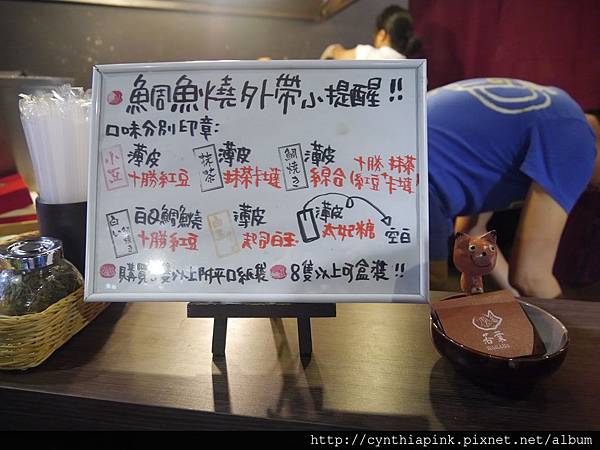 鯛魚燒外帶小提醒!!
口味分別印章:
小豆 薄皮 十勝紅豆
抹茶 薄皮 抹茶卡士達
鯛焼き 薄皮 十勝抹茶 綜合(紅豆+卡士達)
白い鯛焼き 白の鯛魚燒 十勝紅豆
薄皮 起司白玉
薄皮 太妃糖 空白
購買 隻以上附平口紙袋 8隻以上可盒裝!!
若葉
http://cynthiapink.pixnet.net/album